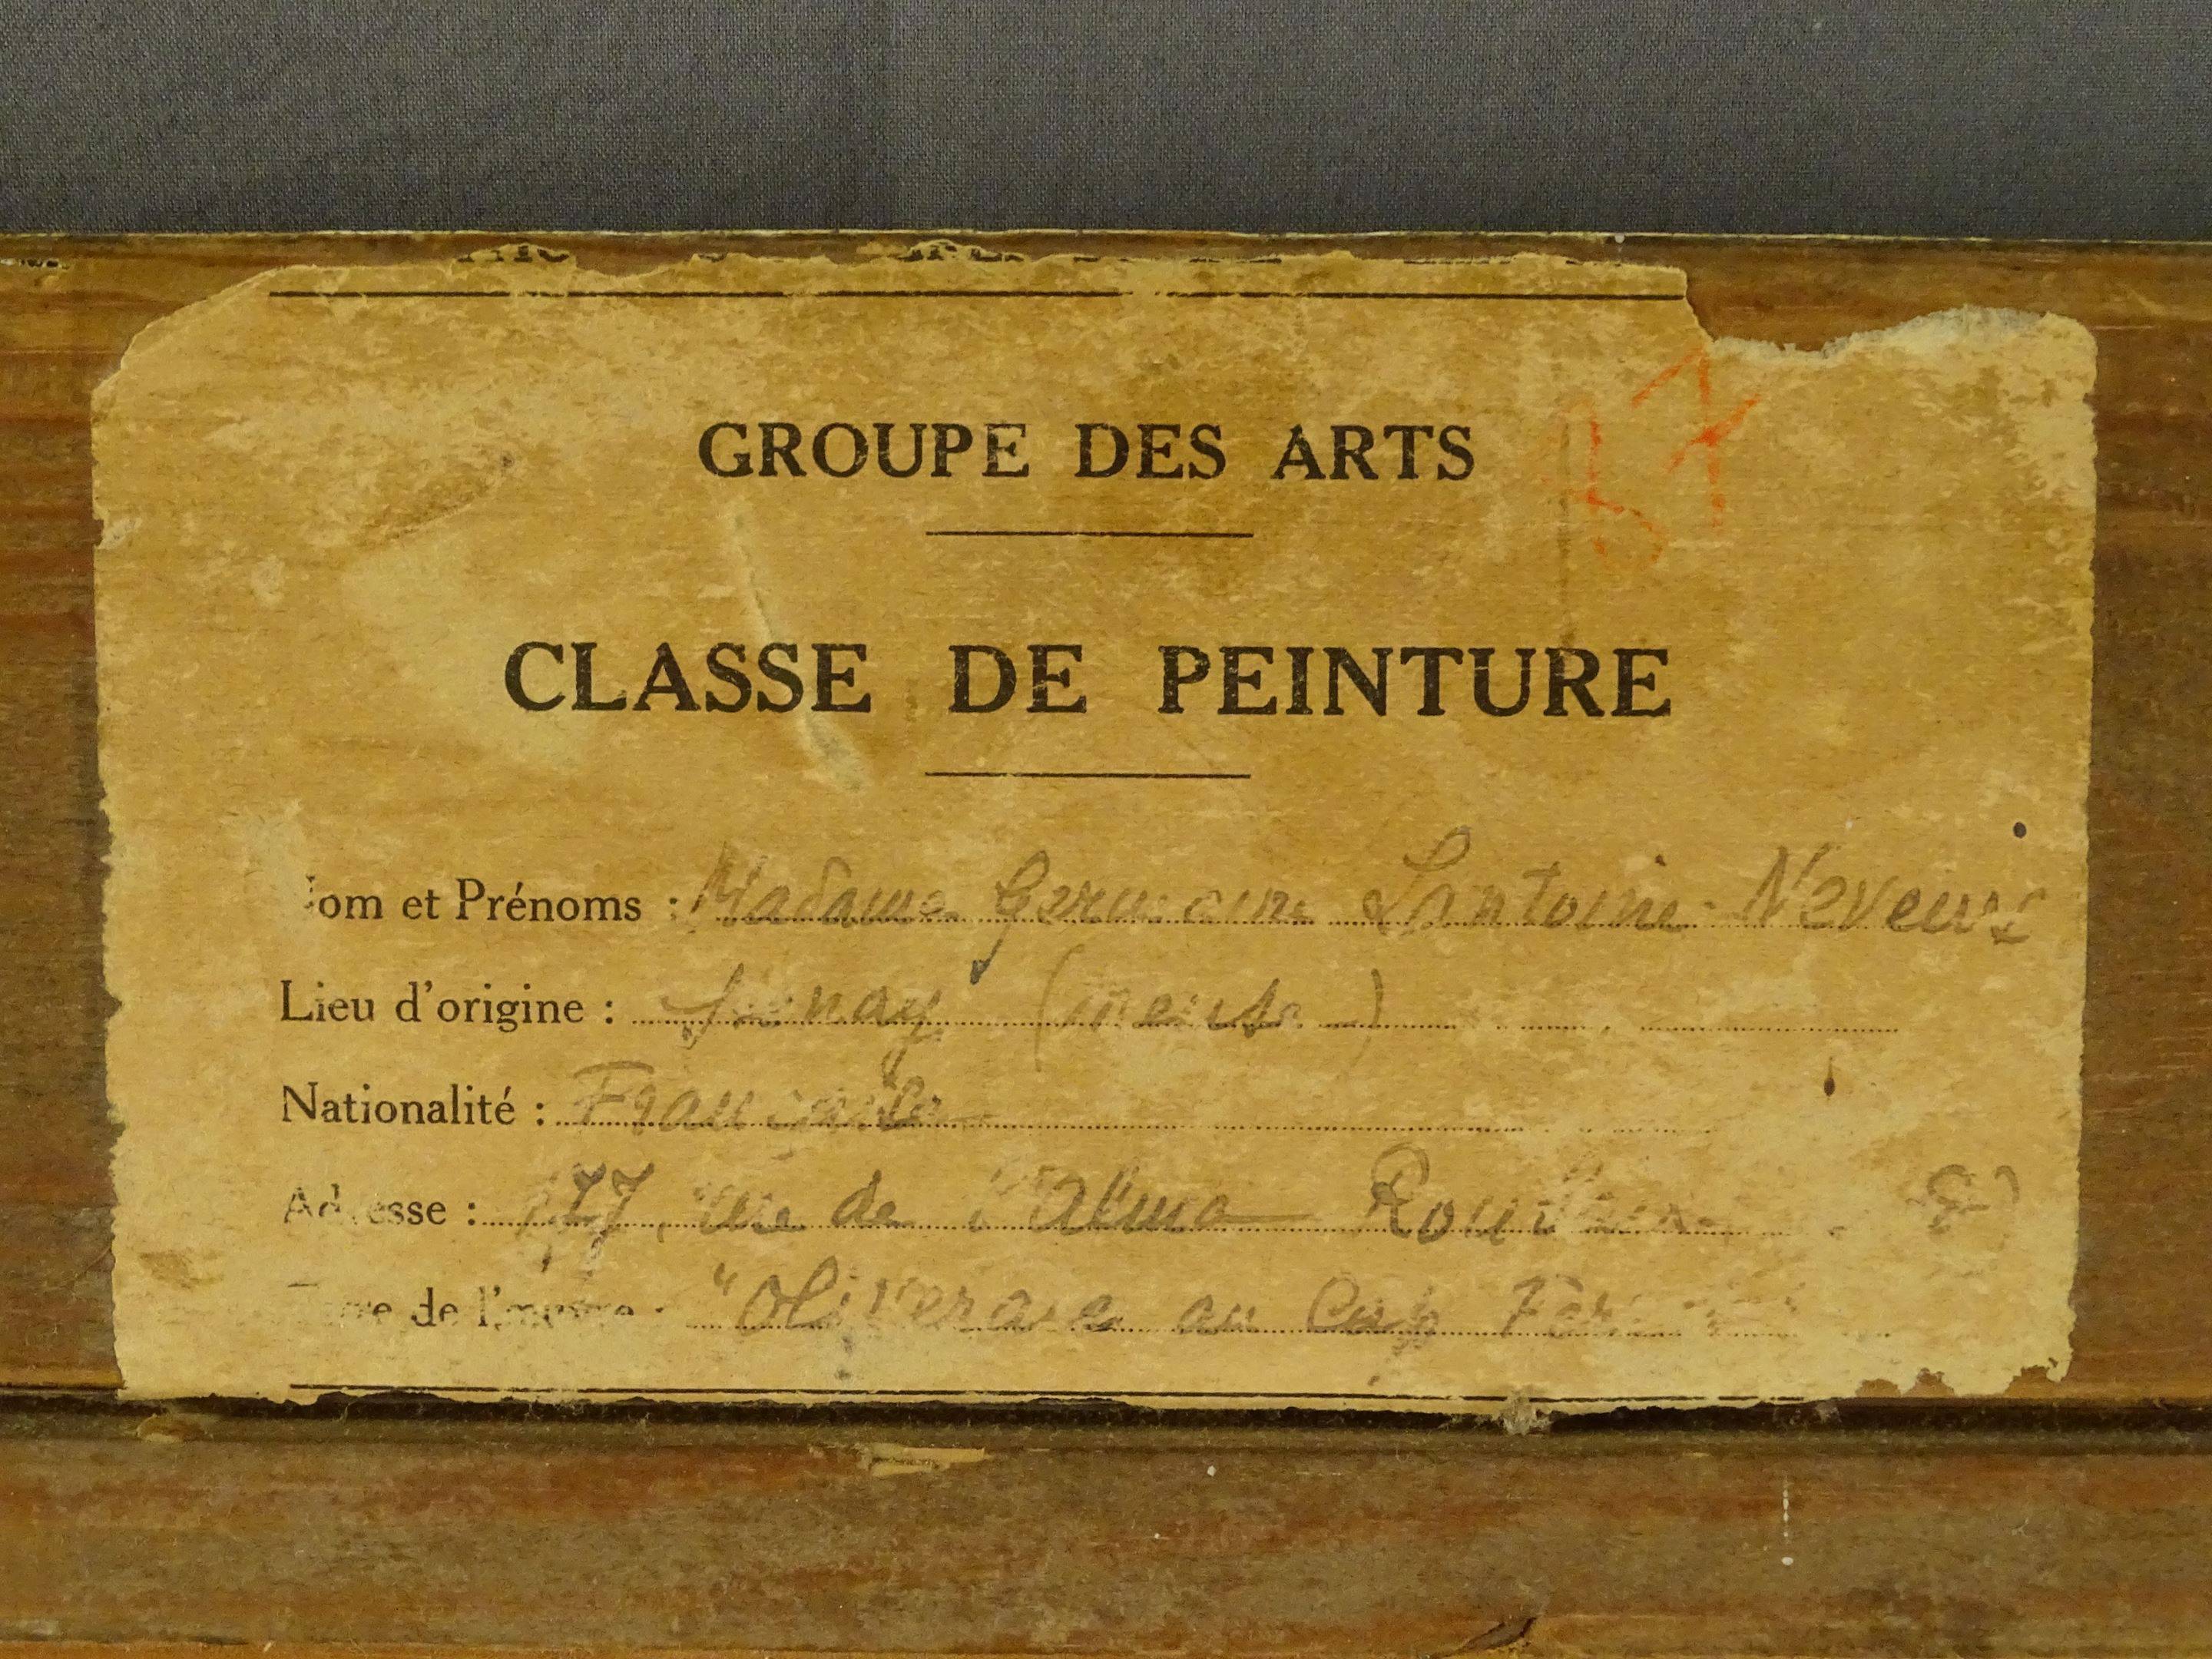 GROUPE DES ARTS
57
CLASSE DE PEINTURE
om et Prénoms : Madame Germaine Lantoine-Neveux
Lieu d'origine : (Meuse)
Nationalité : Française
Adresse : 177, rue de l'Alma Roubaix
de l'œuvre : "Oliveraie au Cap Ferrat